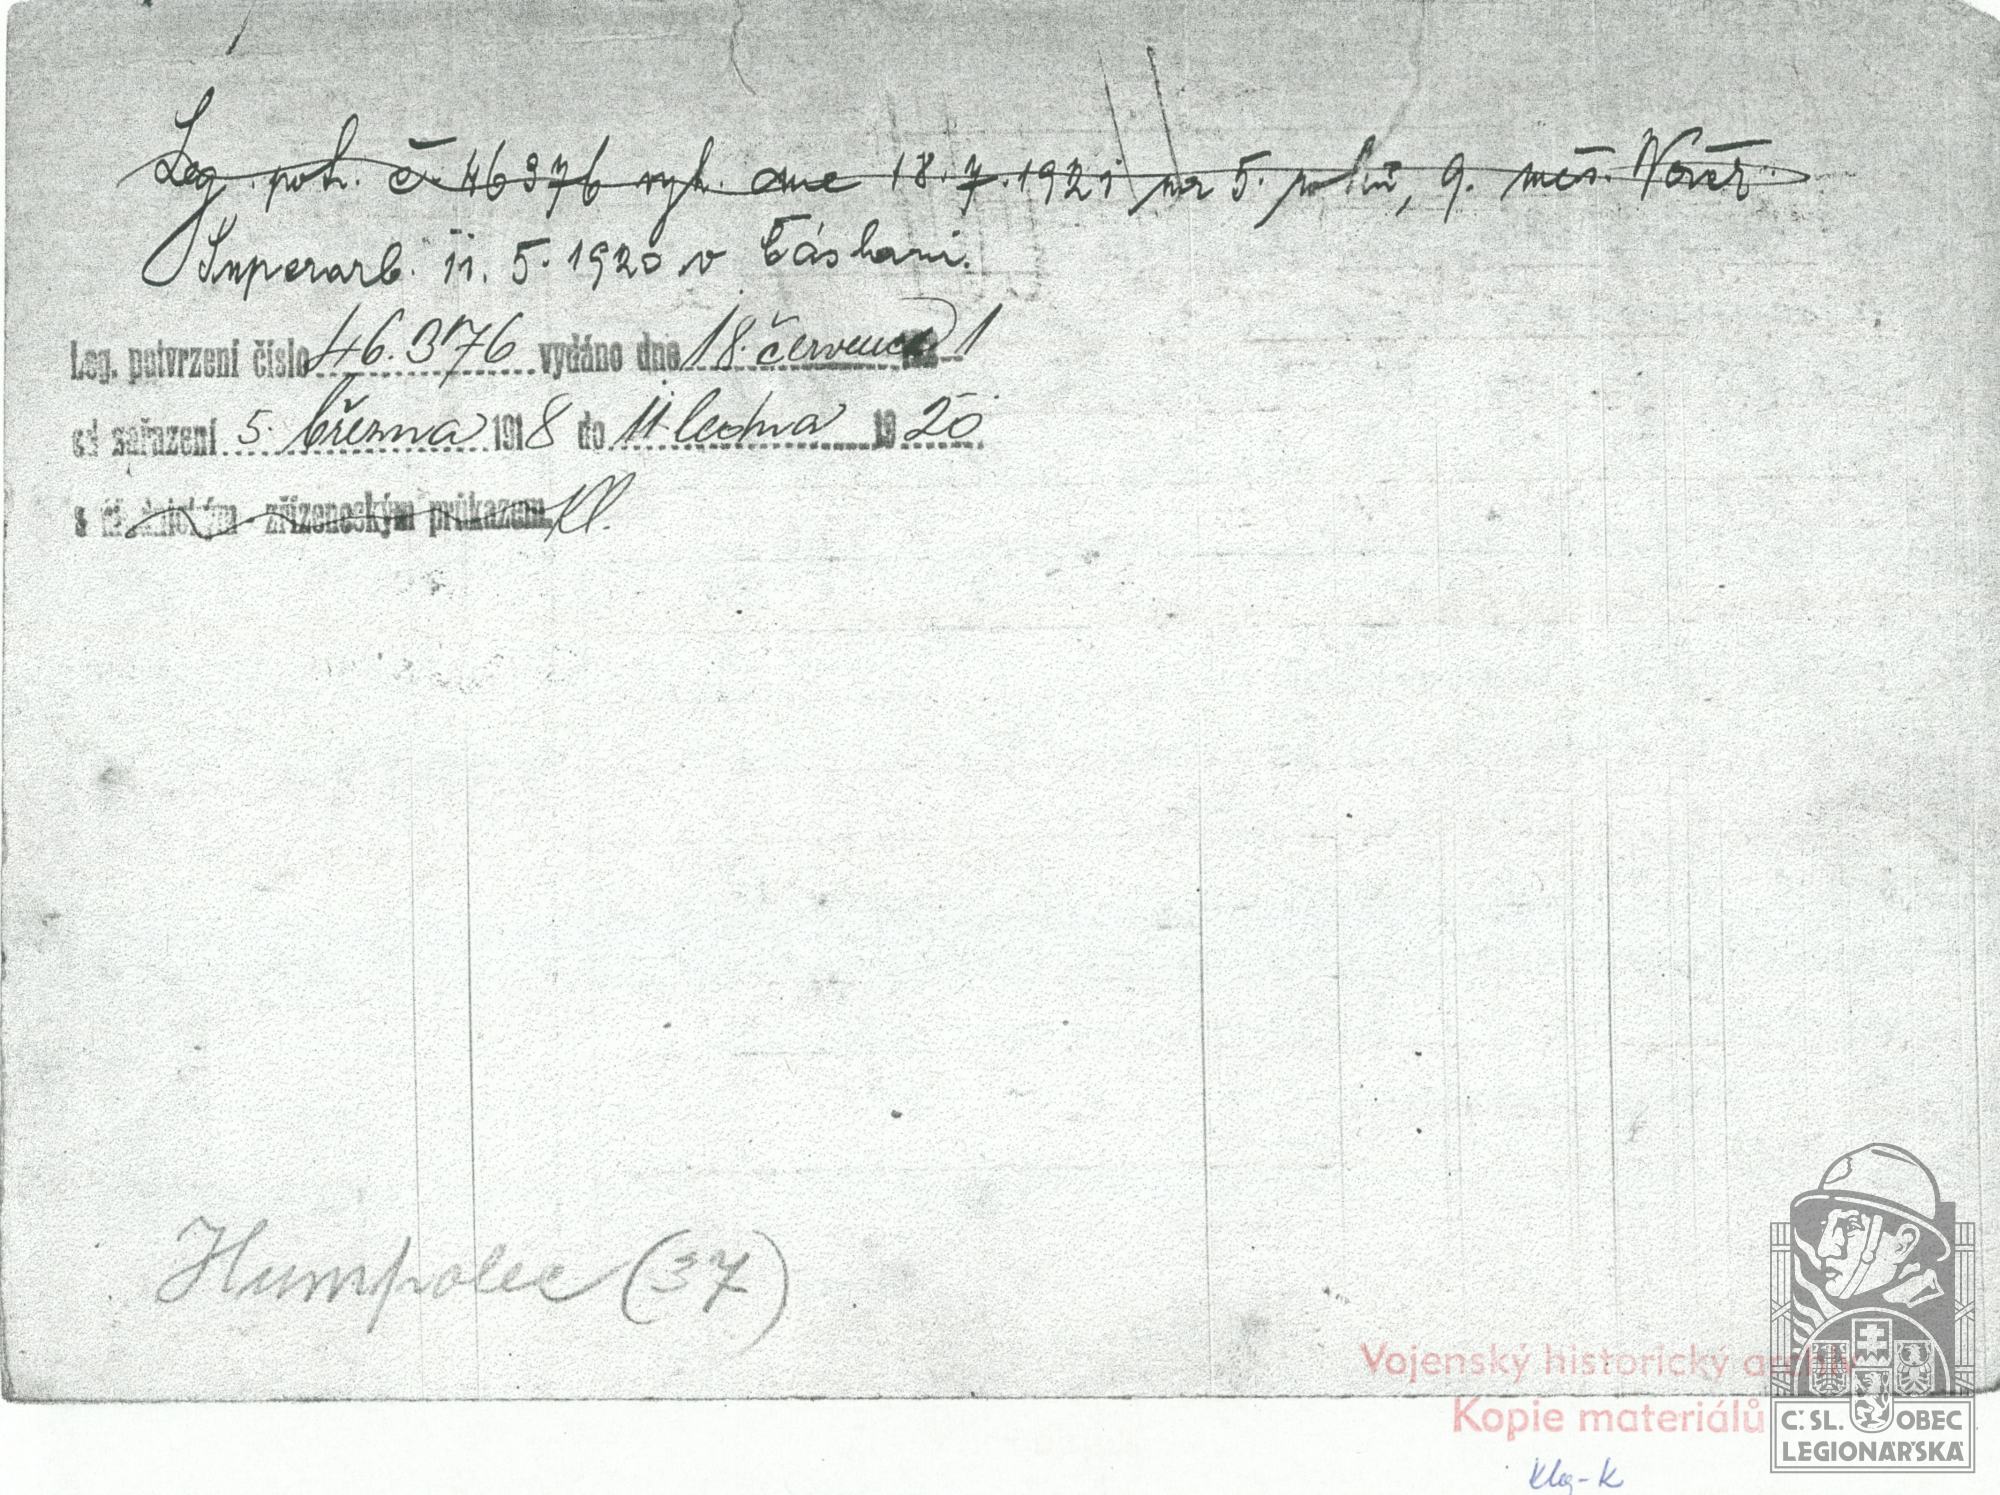 Leg. potv. č. 46376 vyh. dne 18.7.1921 na 5. roků, 9. měs.
Superarb. 11. 5. 1920 v Čáslavi.
Leg. potvrzení číslo 46.376 vydáno dne 18. července 1921
od zařazení 5. března 1918 do 11. ledna 1920
s úřednickým - zřízeneckým průkazem
Humpolec (37)
Vojenský historický archiv
Kopie materiálů
Č. SL. OBEC
LEGIONÁŘSKÁ